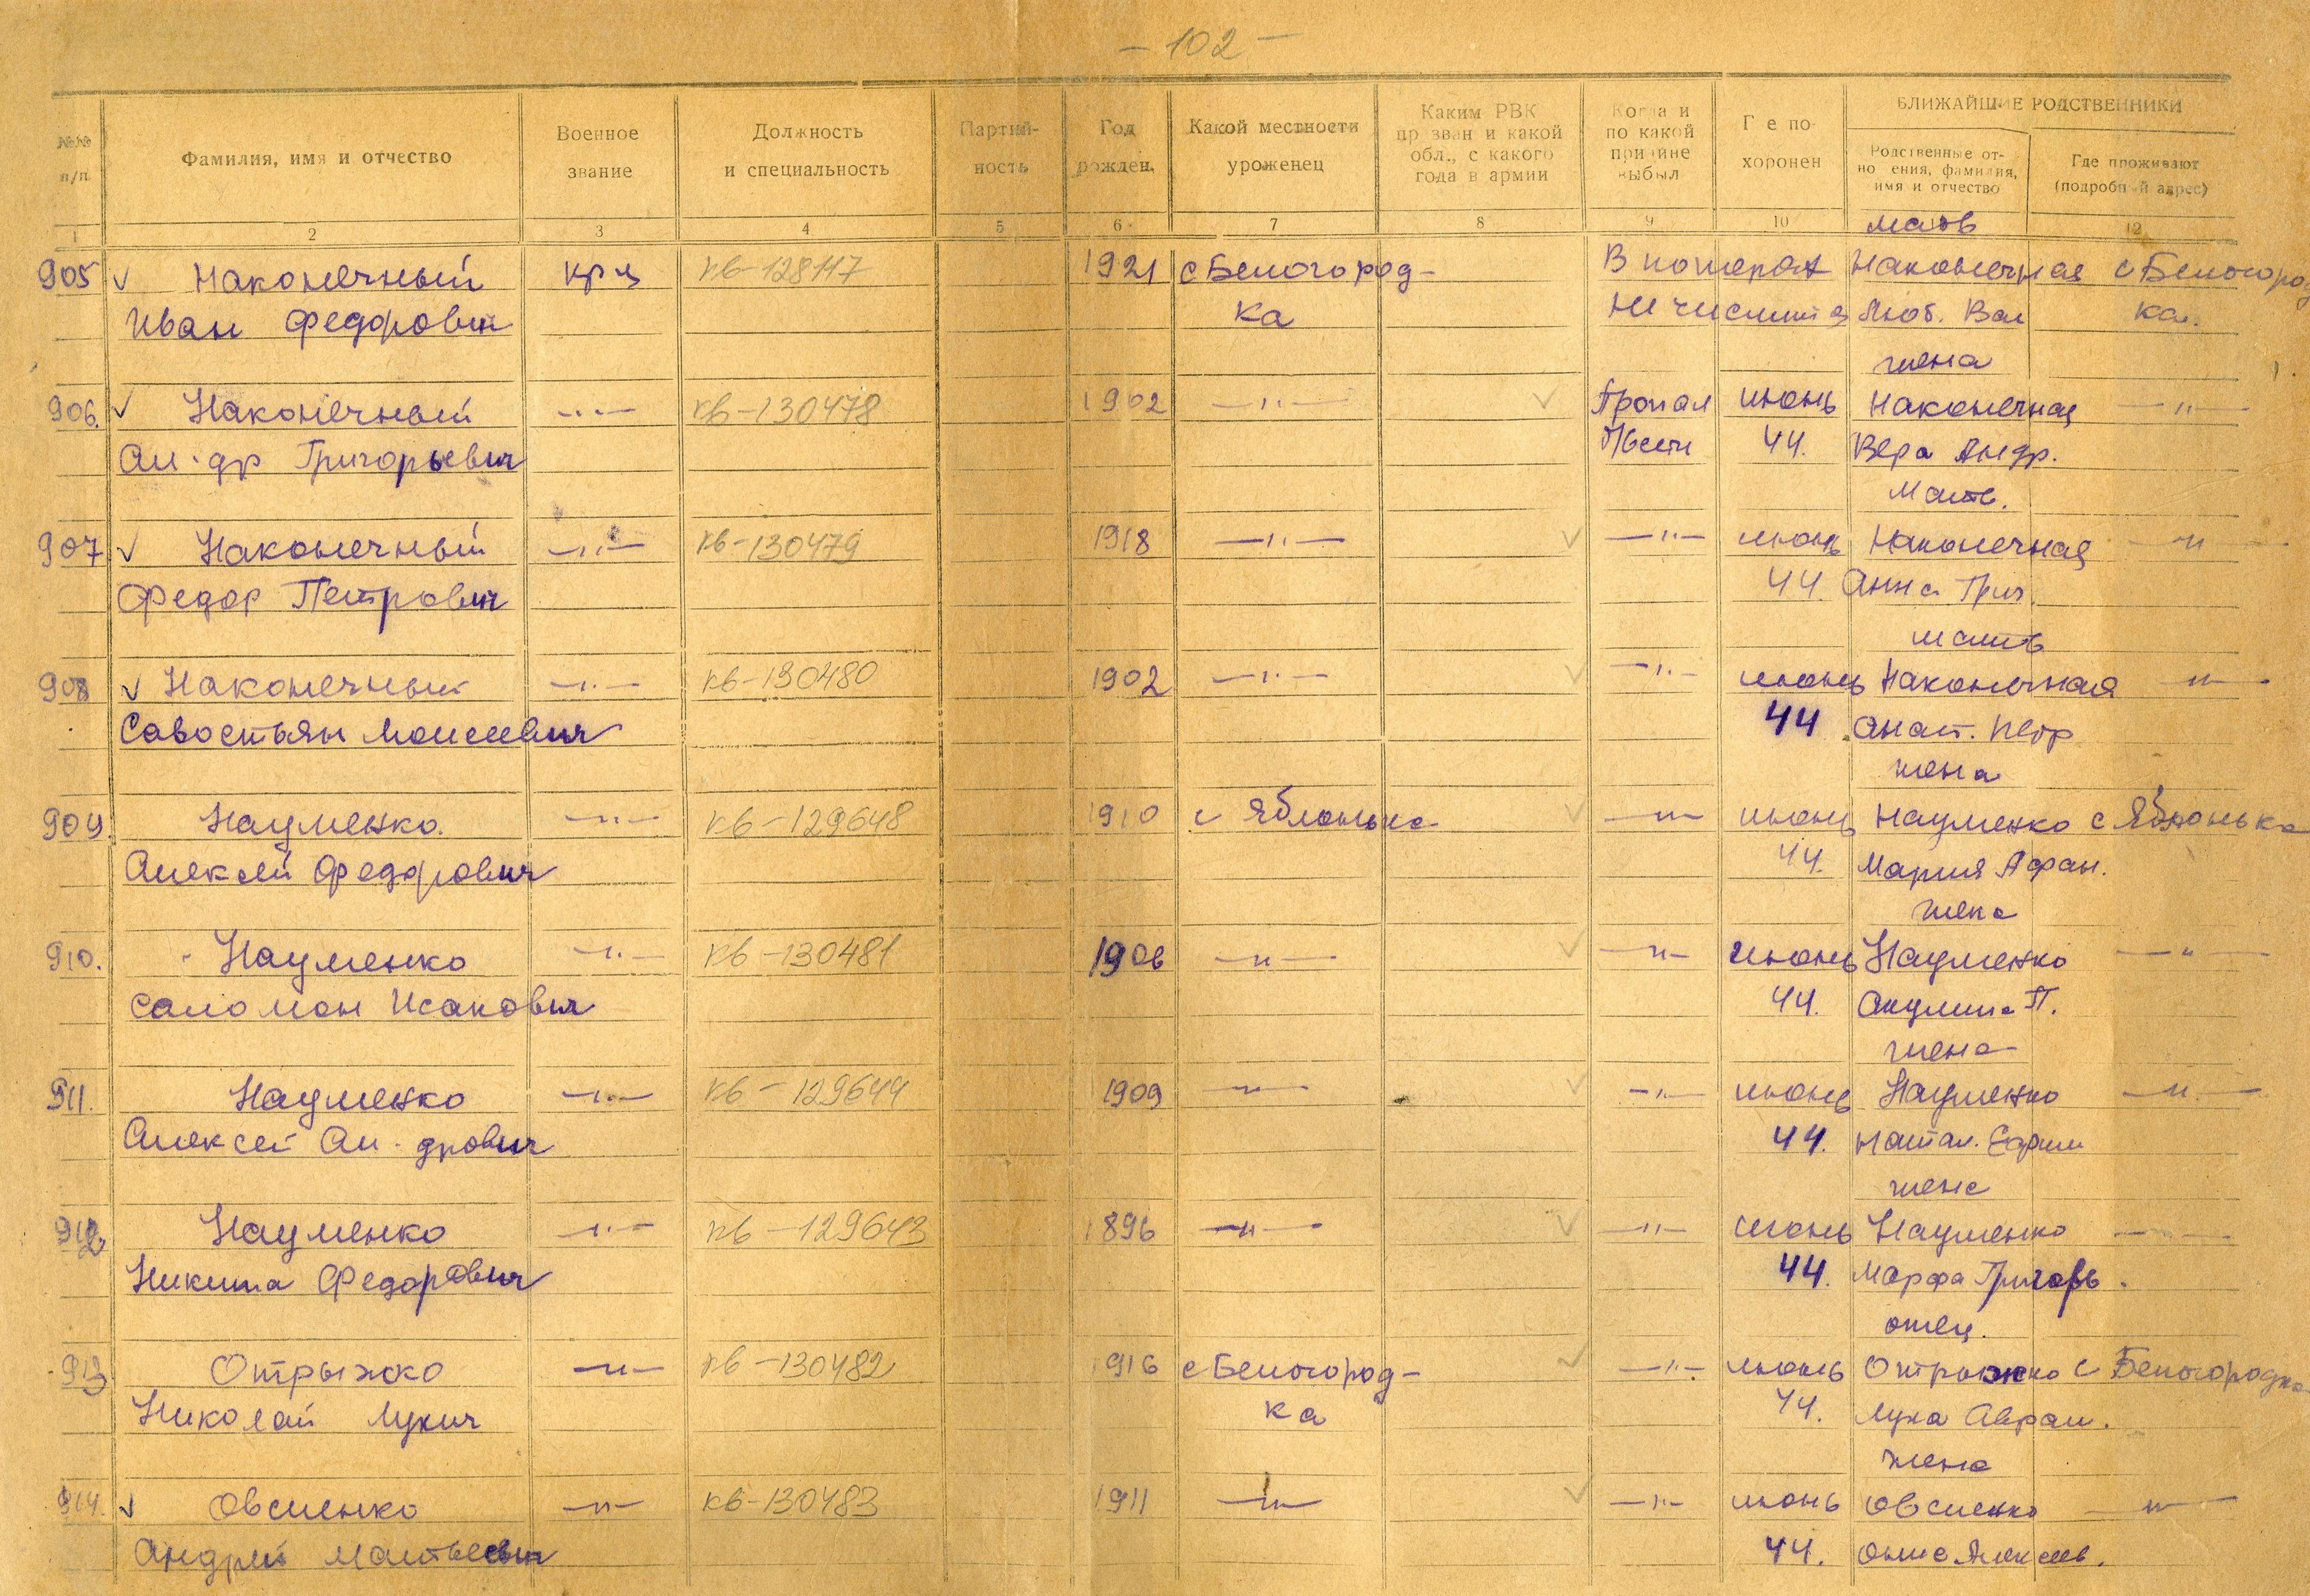 — 102 —
№№ п/п
Фамилия, имя и отчество
Военное звание
Должность и специальность
Партий-ность
Год рожден.
Какой местности уроженец
Каким РВК пр зван и какой обл., с какого года в армии
Когда и по какой причине выбыл
Г е по-хоронен
БЛИЖАЙШИЕ РОДСТВЕННИКИ
Родственные от-но ения, фамилия, имя и отчество
Где проживают (подробн й адрес)
1 2 3 4 5 6 7 8 9 10 12
мать
905 ✓ Наконечный кр-ц кв-128117 1921 с Белогород- В потерях Наконечная с Белогород
Иван Федорович ка не числится Люб. Вас ка.
жена
906. ✓ Наконечный —„— кв-130478 1902 —„— ✓ Пропал июнь Наконечная —„—
Ал-др Григорьевич б/вести 44. Вера Андр.
мать.
907 ✓ Наконечный —„— кв-130479 1918 —„— ✓ —„— июнь Наконечная —„—
Федор Петрович 44. Анна Григ.
мать
908 ✓ Наконечный —„— кв-130480 1902 —„— ✓ —„— июнь Наконечная —„—
Савостьян Моисеевич 44 Анаст. Петр
жена
909. Науменко —„— кв-129648 1910 с Яблонька ✓ —„— июнь Науменко с Яблонька
Алексей Федорович 44. Мария Афан.
жена
910. Науменко —„— кв-130481 1906 —„— ✓ —„— июнь Науменко —„—
Саломон Исакович 44. Акулина П.
жена
911. Науменко —„— кв-129644 1909 —„— ✓ —„— июнь Науменко —„—
Алексей Ал-дрович 44. Натал. Ефим
жена
912 Науменко —„— кв-129643 1896 —„— ✓ —„— июнь Науменко —„—
Никита Федорович 44. Марфа Григорь.
отец.
913 Отрыжко —„— кв-130482 1916 с Белогород- ✓ —„— июнь Отрыжко с Белогородка
Николай Лукич ка 44. Лука Аврам.
жена
914. ✓ Овсиенко —„— кв-130483 1911 —„— ✓ —„— июнь Овсиенко —„—
Андрей Матвеевич 44. Алексеев.